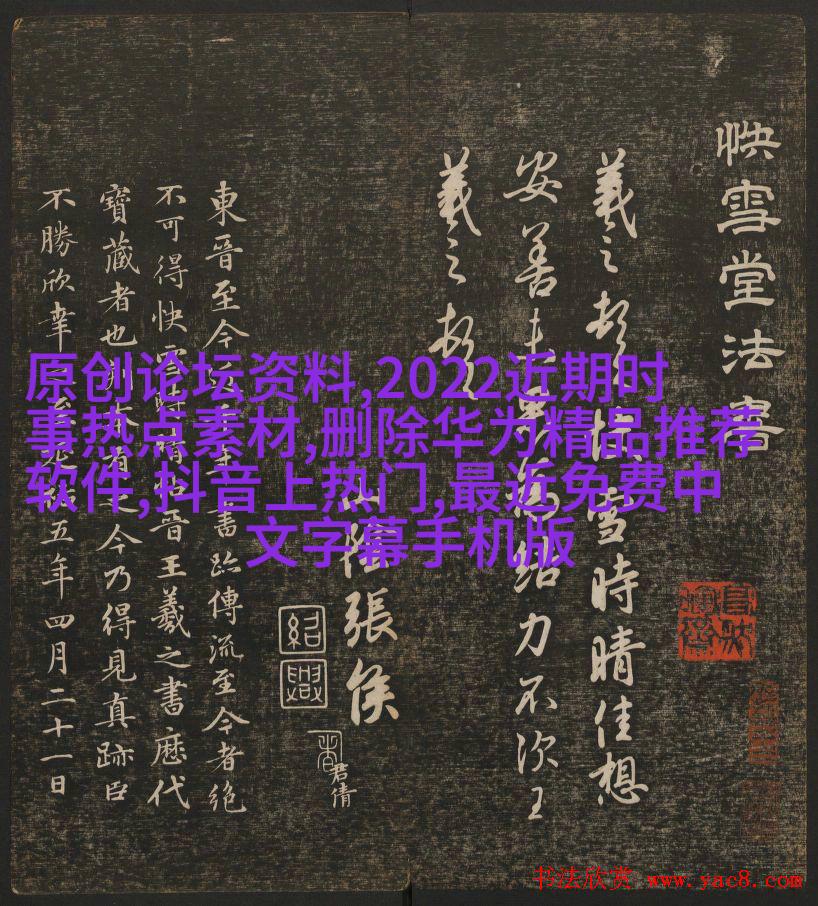 快雪堂法書
羲之頓首快雪時晴佳想
安善未果為結力不次王
羲之頓首
山陰張侯
君倩
東晉至今年書跡傳流至今者絕
不可得快雪時晴帖晉王羲之書歷代
寶藏者也刻本有之今乃得見真跡臣
不勝欣幸五年四月二十一日
原创论坛资料,2022近期时
事热点素材,删除华为精品推荐
软件,抖音上热门,最近免费中
文字幕手机版
书法欣赏 www.yac8.com